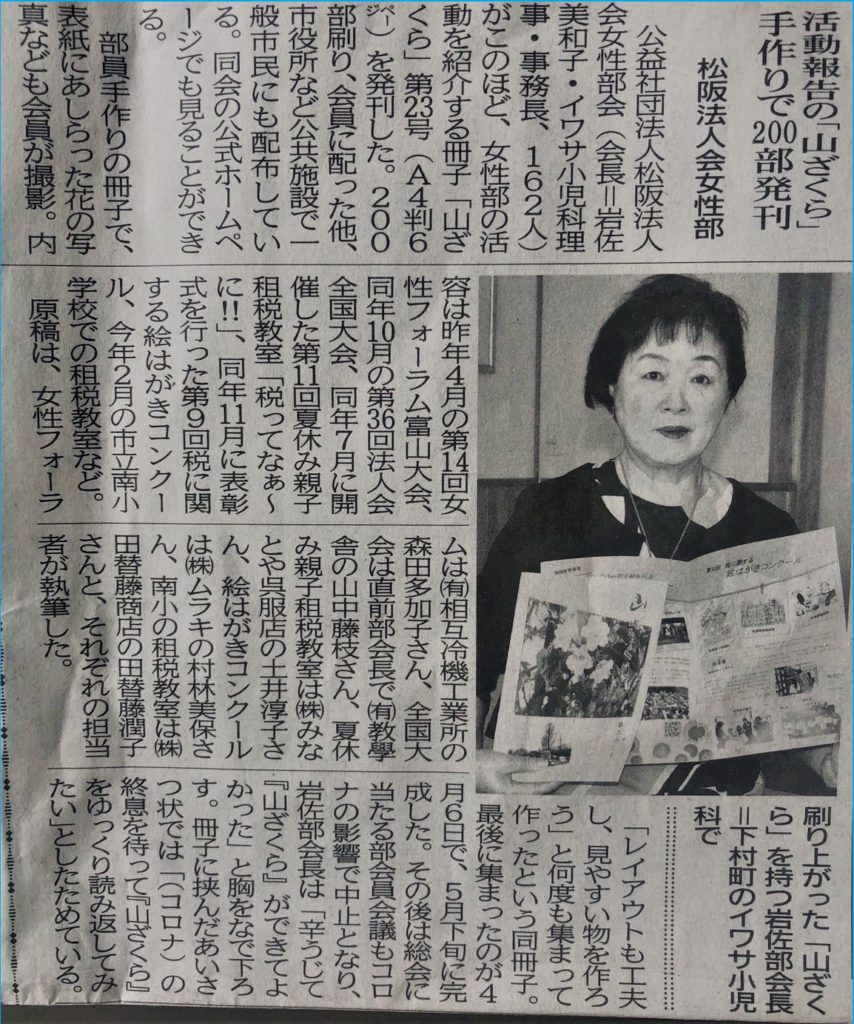 活動報告の「山ざくら」
手作りで200部発刊
松阪法人会女性部
公益社団法人松阪法人
会女性部会（会長＝岩佐
美和子・イワサ小児科理
事・事務長、162人）
がこのほど、女性部の活
動を紹介する冊子「山ざ
くら」第23号（A4判6
㌻）を発刊した。200
部刷り、会員に配った他、
市役所など公共施設で一
般市民にも配布してい
る。同会の公式ホームペ
ージでも見ることができ
る。
部員手作りの冊子で、
表紙にあしらった花の写
真なども会員が撮影。内
容は昨年4月の第14回女
性フォーラム富山大会、
同年10月の第36回法人会
全国大会、同年7月に開
催した第11回夏休み親子
租税教室「税ってなぁ～
に!!」、同年11月に表彰
式を行った第9回税に関
する絵はがきコンクー
ル、今年2月の市立南小
学校での租税教室など。
原稿は、女性フォーラ
ムは㈲相互冷機工業所の
森田多加子さん、全国大
会は直前部会長で㈲教學
舎の山中藤枝さん、夏休
み親子租税教室は㈱みな
とや呉服店の土井淳子さ
ん、絵はがきコンクール
は㈱ムラキの村林美保さ
ん、南小の租税教室は㈱
田替藤商店の田替藤潤子
さんと、それぞれの担当
者が執筆した。
「レイアウトも工夫
し、見やすい物を作ろ
う」と何度も集まって
作ったという同冊子。
最後に集まったのが4
月6日で、5月下旬に完
成した。その後は総会に
当たる部会員会議もコロ
ナの影響で中止となり、
岩佐部会長は「辛うじて
『山ざくら』ができてよ
かった」と胸をなで下ろ
す。冊子に挟んだあいさ
つ状では「（コロナ）の
終息を待って『山ざくら』
をゆっくり読み返してみ
たい」としたためている。
刷り上がった「山ざく
ら」を持つ岩佐部会長
＝下村町のイワサ小児
科で
山
第9回 税に関する
絵はがきコンクール